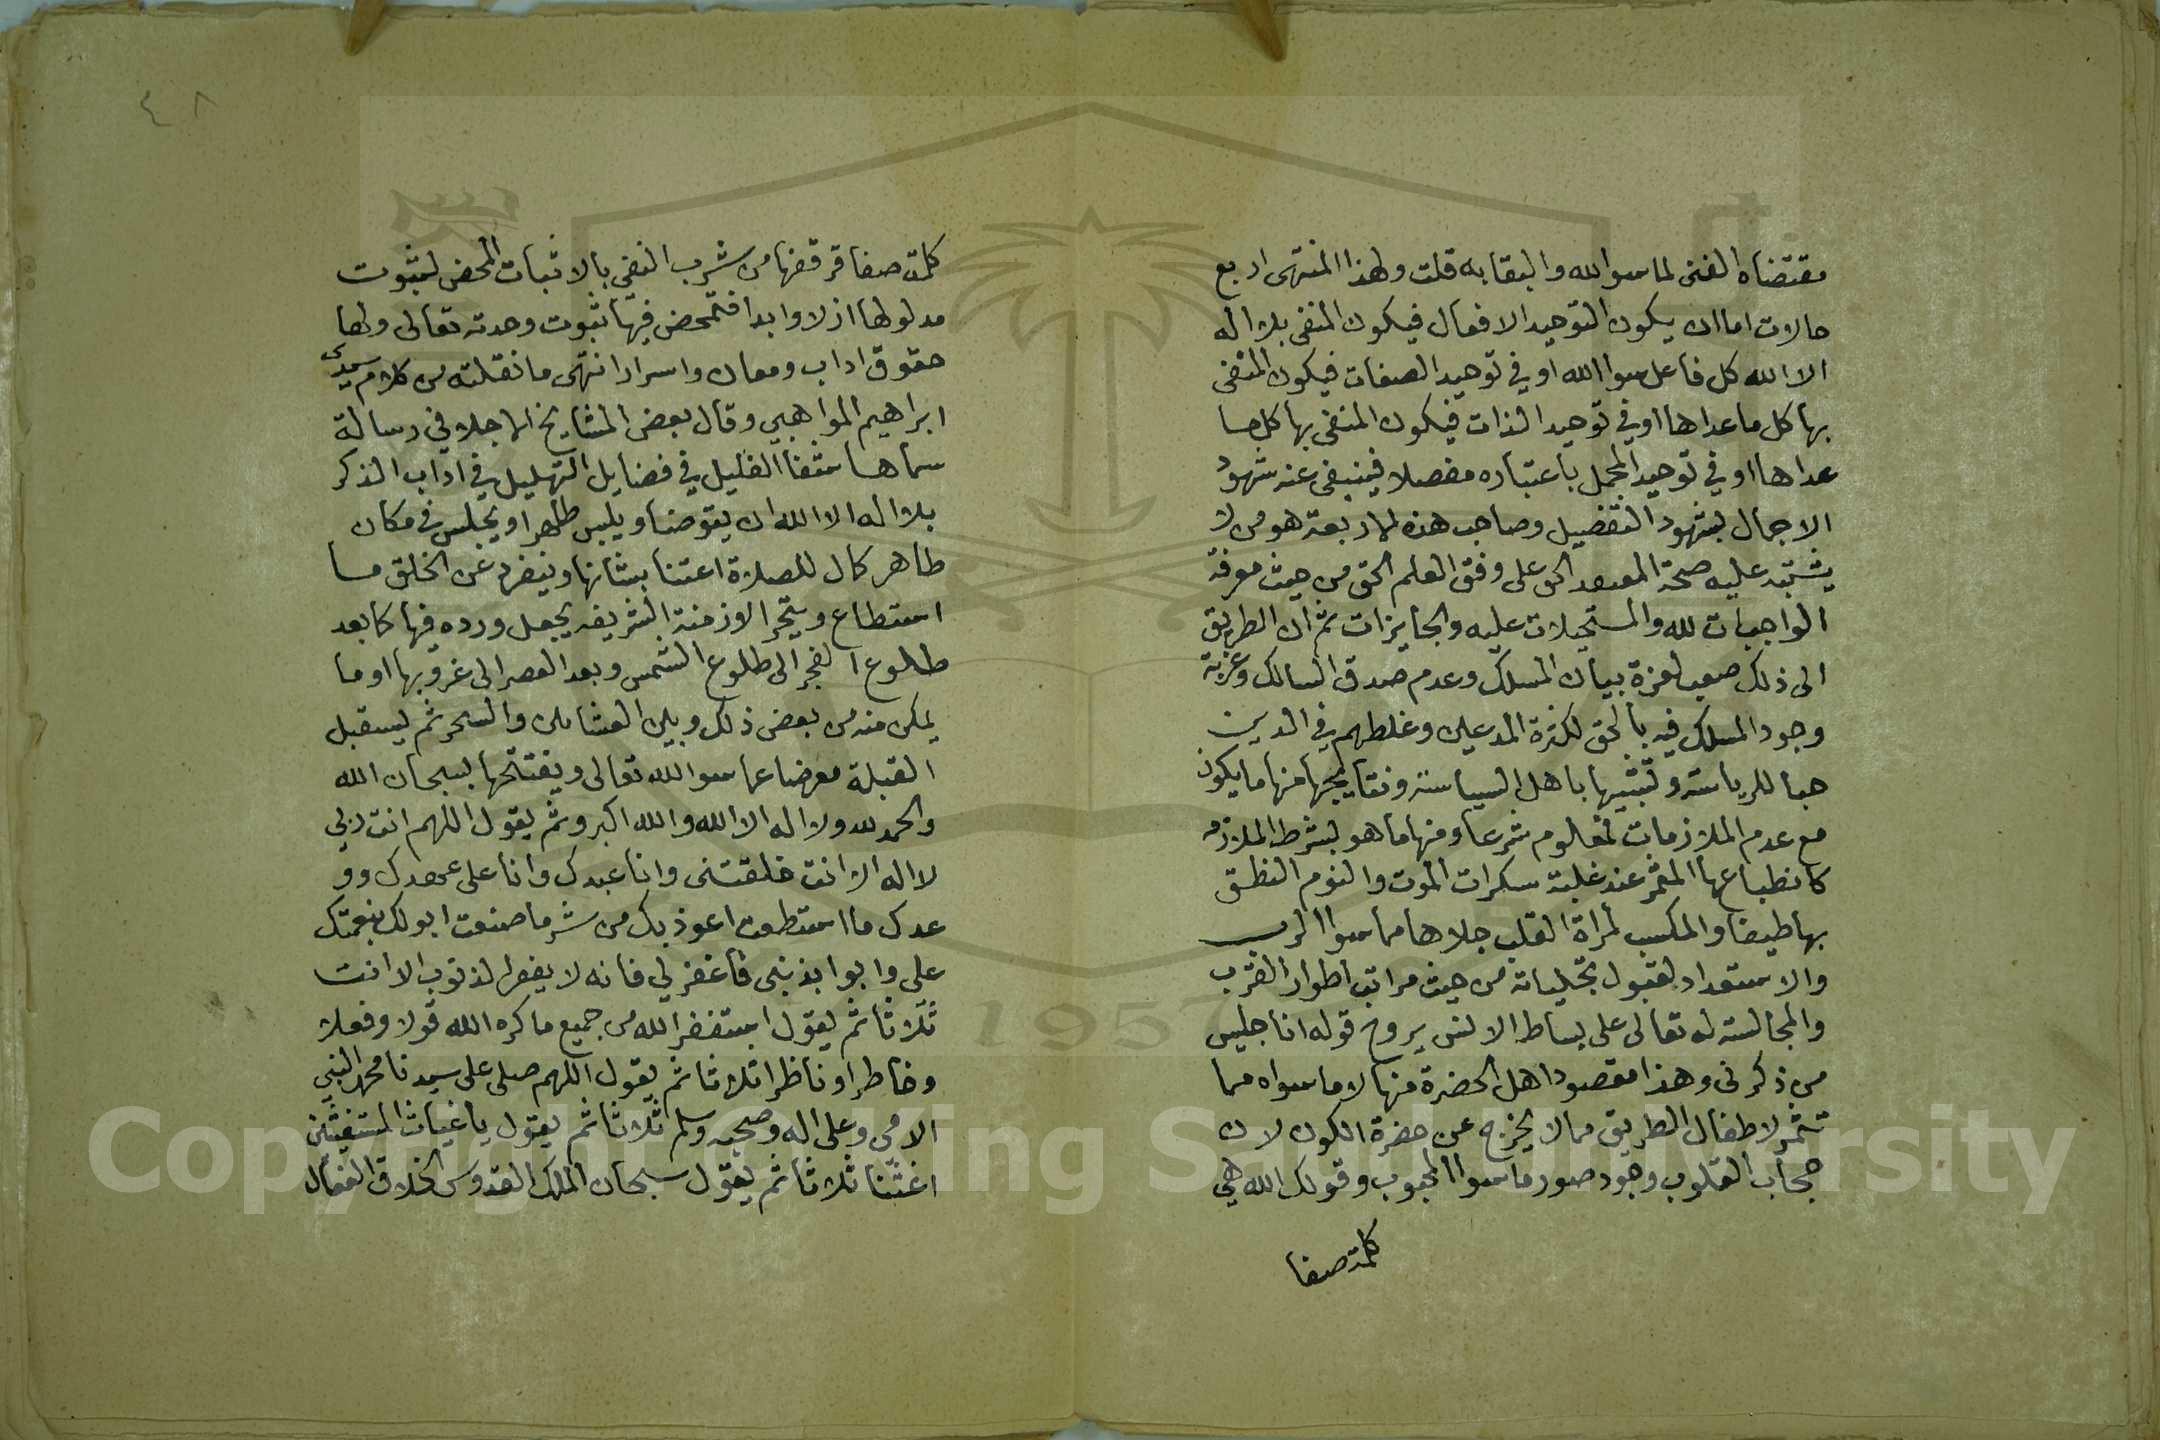 مقتضاه الفنى لما سوا الله والبقا به قلت ولهذا المنتهى اربع
حالات اما ان يكون التوحيد الافعال فيكون المنفى بلا اله
الا الله كل فاعل سوا الله او في توحيد الصفات فيكون المنفى
بها كل ما عداها او في توحيد الذات فيكون المنفى بها كل ما
عداها او في توحيد المجمل باعتباره مفصلا فينبغى عنه شهود
الاجمال لشهود التفضيل وصاحب هذه الاربعة هو من لا
يشتبه عليه صحة المعتقد الحق على وفق العلم الحق من حيث معرفة
الواجبات لله والمستحيلات عليه والجايزات ثم ان الطريق
الى ذلك صعب لعزة بيان المسلك وعدم صدق السالك وغربة
وجود المسلك فيه بالحق لكثرة المدعين وغلطهم في الدين
حبا للرياسة وتشبيها باهل السياسة ونتايجها منها ما يكون
مع عدم الملازمات لمعلوم شرعا ومنها ما هو بشرط الملازمه
كانطباعها المثمر عند غلبة سكرات الموت والنوم النطق
بها طيضا والمكسب لمراة القلب جلاها مما سوا الرب
والاستعداد لقبول تجلياته من حيث مراتب اطوار القرب
والمجالسة له تعالى على بساط الانس بروح قوله انا جليس
من ذكرنى وهذا مقصود اهل الحضرة منها لا ما سواه مما
تثمر لاطفال الطريق مما لا يخرج عن حضرة الكون لان
حجاب القلوب وجود صور ما سوا المحبوب وقولك الله هي
كلمة صفا
٤٨
كلمة صفا قرقفها من شرب النفى بالاثبات المحض لثبوت
مدلولها ازلا وابدا فتمحض فيها ثبوت وحدته تعالى ولها
حقوق اداب ومعان واسرار انتهى ما نقلته من كلام سيدى
ابراهيم المواهبي وقال بعض المشايخ الاجلا في رسالة
سماها شفا الغليل في فضايل التهليل في اداب الذكر
بلا اله الا الله ان يتوضا ويلبس طاهرا ويجلس في مكان
طاهر كال للصلاة اعتنا بشانها وينفرد عن الخلق ما
استطاع ويتحر الاوزمنة الشريفه يجعل ورده فيها كا بعد
طلوع الفجر الى طلوع الشمس وبعد العصر الى غروبها او ما
يمكن منه من بعض ذلك وبين العشاين والسحر ثم ليستقبل
القبلة معرضا عما سوا الله تعالى ويفتتحها بسبحان الله
والحمد لله ولا اله الا الله والله اكبر وثم يقول اللهم انت ربي
لا اله الا انت خلقتنى وانا عبدك وانا على عهدك وو
عدك ما استطعت اعوذ بك من شر ما صنعت ابو لك بنعمتك
على وابوا بذنبى فاغفر لي فانه لا يغفر الذنوب الا انت
ثلاثا ثم يقول استغفر الله من جميع ما كره الله قولا وفعلا
وخاطرا وناظرا ثلاثا ثم يقول اللهم صلى على سيدنا محمد النبي
الامى وعلى اله وصحبه وسلم ثلاثا ثم يقول يا غياث المستغيثين
اغثنا ثلاثا ثم يقول سبحان الملك القدوس الخلاق الفعال
Copyright © King Saud University
1957